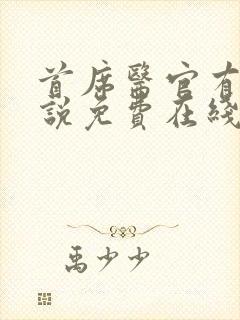 首席醫官有
說免費在綫
禹少少